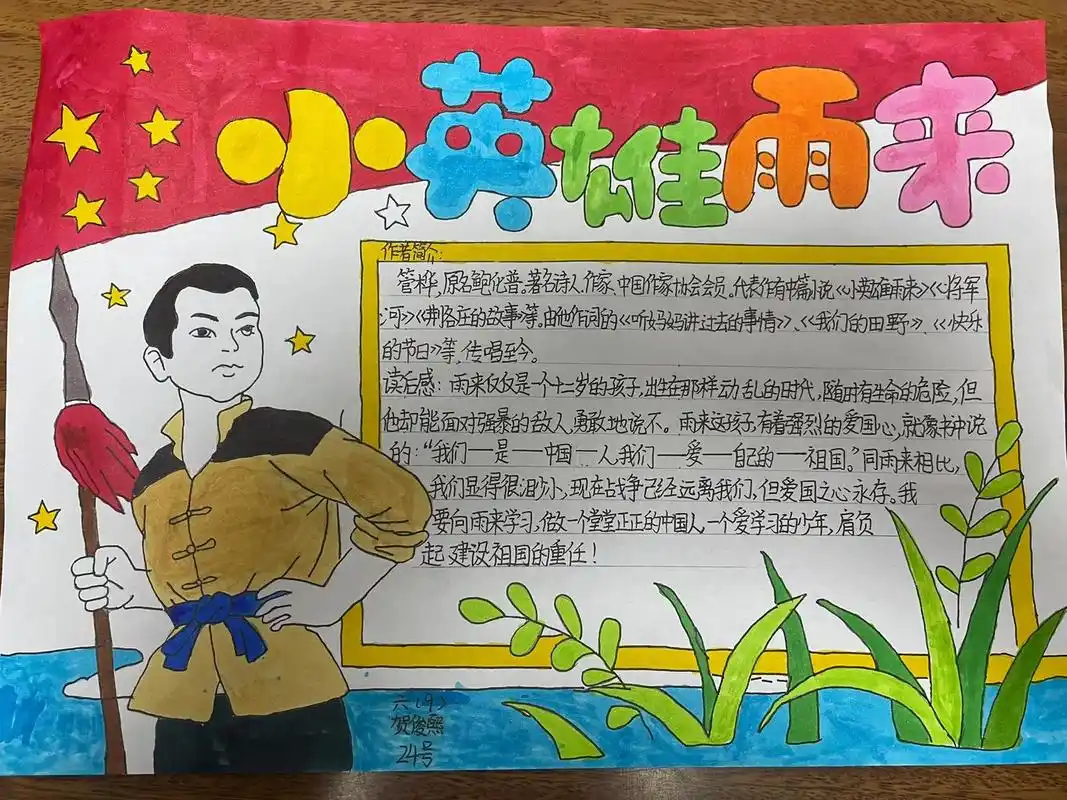 小英雄雨来
作者简介:
管桦,原名鲍化普。著名诗人、作家、中国作家协会会员。代表作有中篇小说《小英雄雨来》《将军
河》《井陉庄的故事》等。由他作词的《听妈妈讲过去的事情》、《我们的田野》、《快乐
的节日》等,传唱至今。
读后感:雨来仅仅是一个十二岁的孩子,出生在那样动乱的时代,随时有生命的危险,但
他却能面对强暴的敌人勇敢地说不。雨来这孩子,有着强烈的爱国心,就像书中说
的:“我们——是——中国——人,我们——爱——自己的——祖国。”同雨来相比,
我们显得很渺小,现在战争已经远离我们,但爱国之心永存。我
要向雨来学习,做一个堂堂正正的中国人,一个爱学习的少年,肩负
起建设祖国的重任!
六(9)
贺俊熙
24号